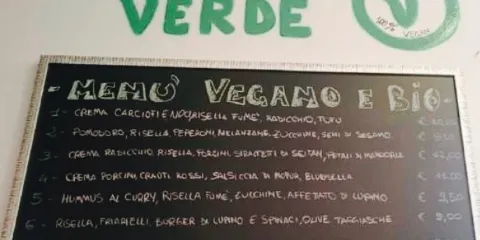 VERDE
100% VEGAN
- MENU' VEGANO E BIO -
1 - CREMA CARCIOFI E NOCI, RISELLA FUMÈ, RADICCHIO, TOFU €
2 - POMODORO, RISELLA, PEPERONI, MELANZANE, ZUCCHINE, SEMI DI SESAMO €
3 - CREMA RADICCHIO RISELLA, PORCINI, STRACCETTI DI SEITAN, PETALI DI MANDORLA €
4 - CREMA PORCINI, CRAUTI ROSSI, SALSICCIA DI MOPUR, BLURISELLA €
5 - HUMMUS AL CURRY, RISELLA FUMÈ, ZUCCHINE, AFFETTATO DI LUPINO € 9,50
6 - RISELLA, FRIARIELLI, BURGER DI LUPINO E SPINACI, OLIVE TAGGIASCHE € 9,00